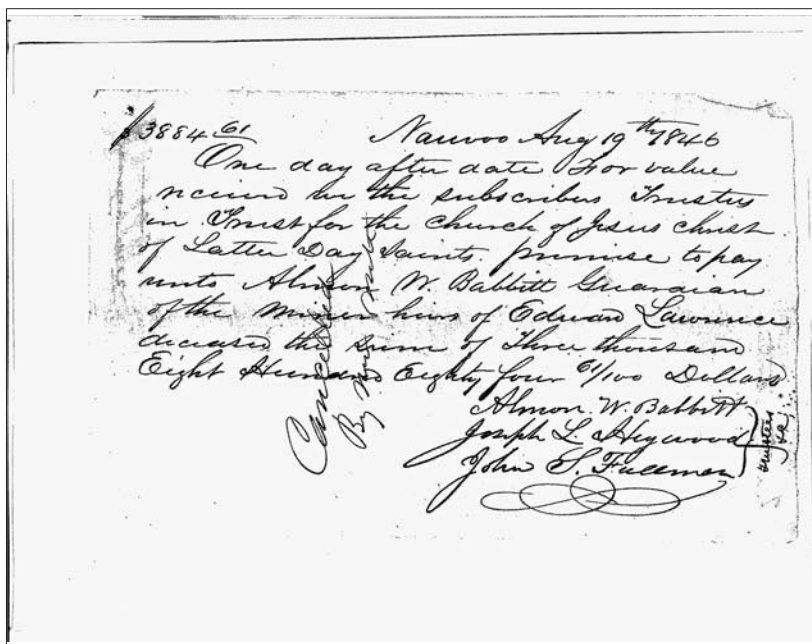 $3884 61
Nauvoo Aug 19th 1846
One day after date For value
received we the subscribers Trustees
in Trust for the Church of Jesus Christ
of Latter Day Saints. promise to pay
unto Almon W. Babbitt Guardian
of the Minor heirs of Edward Lawrence
deceased the sum of Three thousand
Eight Hundred Eighty four 61/100 Dollars
Almon. W. Babbitt
Joseph L. Heywood
John S. Fullmer
Trustees
Cancelled
By New Note